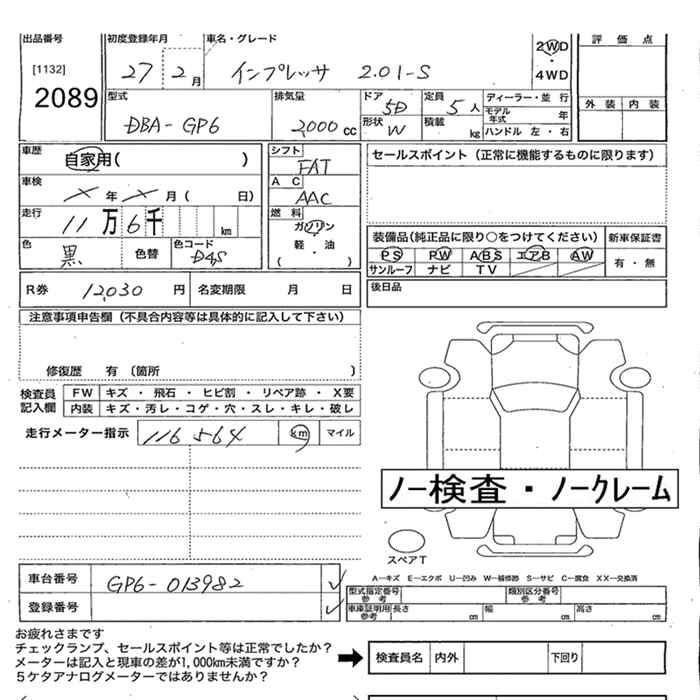 出品番号 初度登録年月 車名・グレード 2WD 評価点
[1132] 27 2月 インプレッサ 2.0I-S ・
2089 4WD
型式 排気量 ドア 5D 定員 5人 ディーラー・並行 外装 内装
DBA-GP6 2,000cc 形状 W 積載 kg モデル年式 年
ハンドル 左・右
車歴 自家用( ) シフト FAT セールスポイント(正常に機能するものに限ります)
車検 ×年×月( 日) AC AAC
走行 11万6千 km 燃料 ガソリン
色 黒 色替 色コード D4S 軽・油 ( )
装備品(純正品に限り○をつけてください) 新車保証書
PS PW ABS エアB AW 有・無
サンルーフ ナビ TV
R券 12,030円 名変期限 月 日 後日品
注意事項申告欄(不具合内容等は具体的に記入して下さい)
修復歴 有(箇所 )
検査員記入欄 FW キズ・飛石・ヒビ割・リペア跡・X要
内装 キズ・汚レ・コゲ・穴・スレ・キレ・破レ
走行メーター指示 116564 km マイル
ノー検査・ノークレーム
スペアT
A-キズ E-エクボ U-凹み W-補修跡 S-サビ C-腐食 XX-交換済
車台番号 GP6-013982 型式指定番号参考 類別区分番号参考
登録番号 車庫証明用参考 長さ cm 幅 cm 高さ cm
お疲れさまです
チェックランプ、セールスポイント等は正常でしたか?
メーターは記入と現車の差が1,000km未満ですか?
5ケタアナログメーターではありませんか?
検査員名 内外 下回り